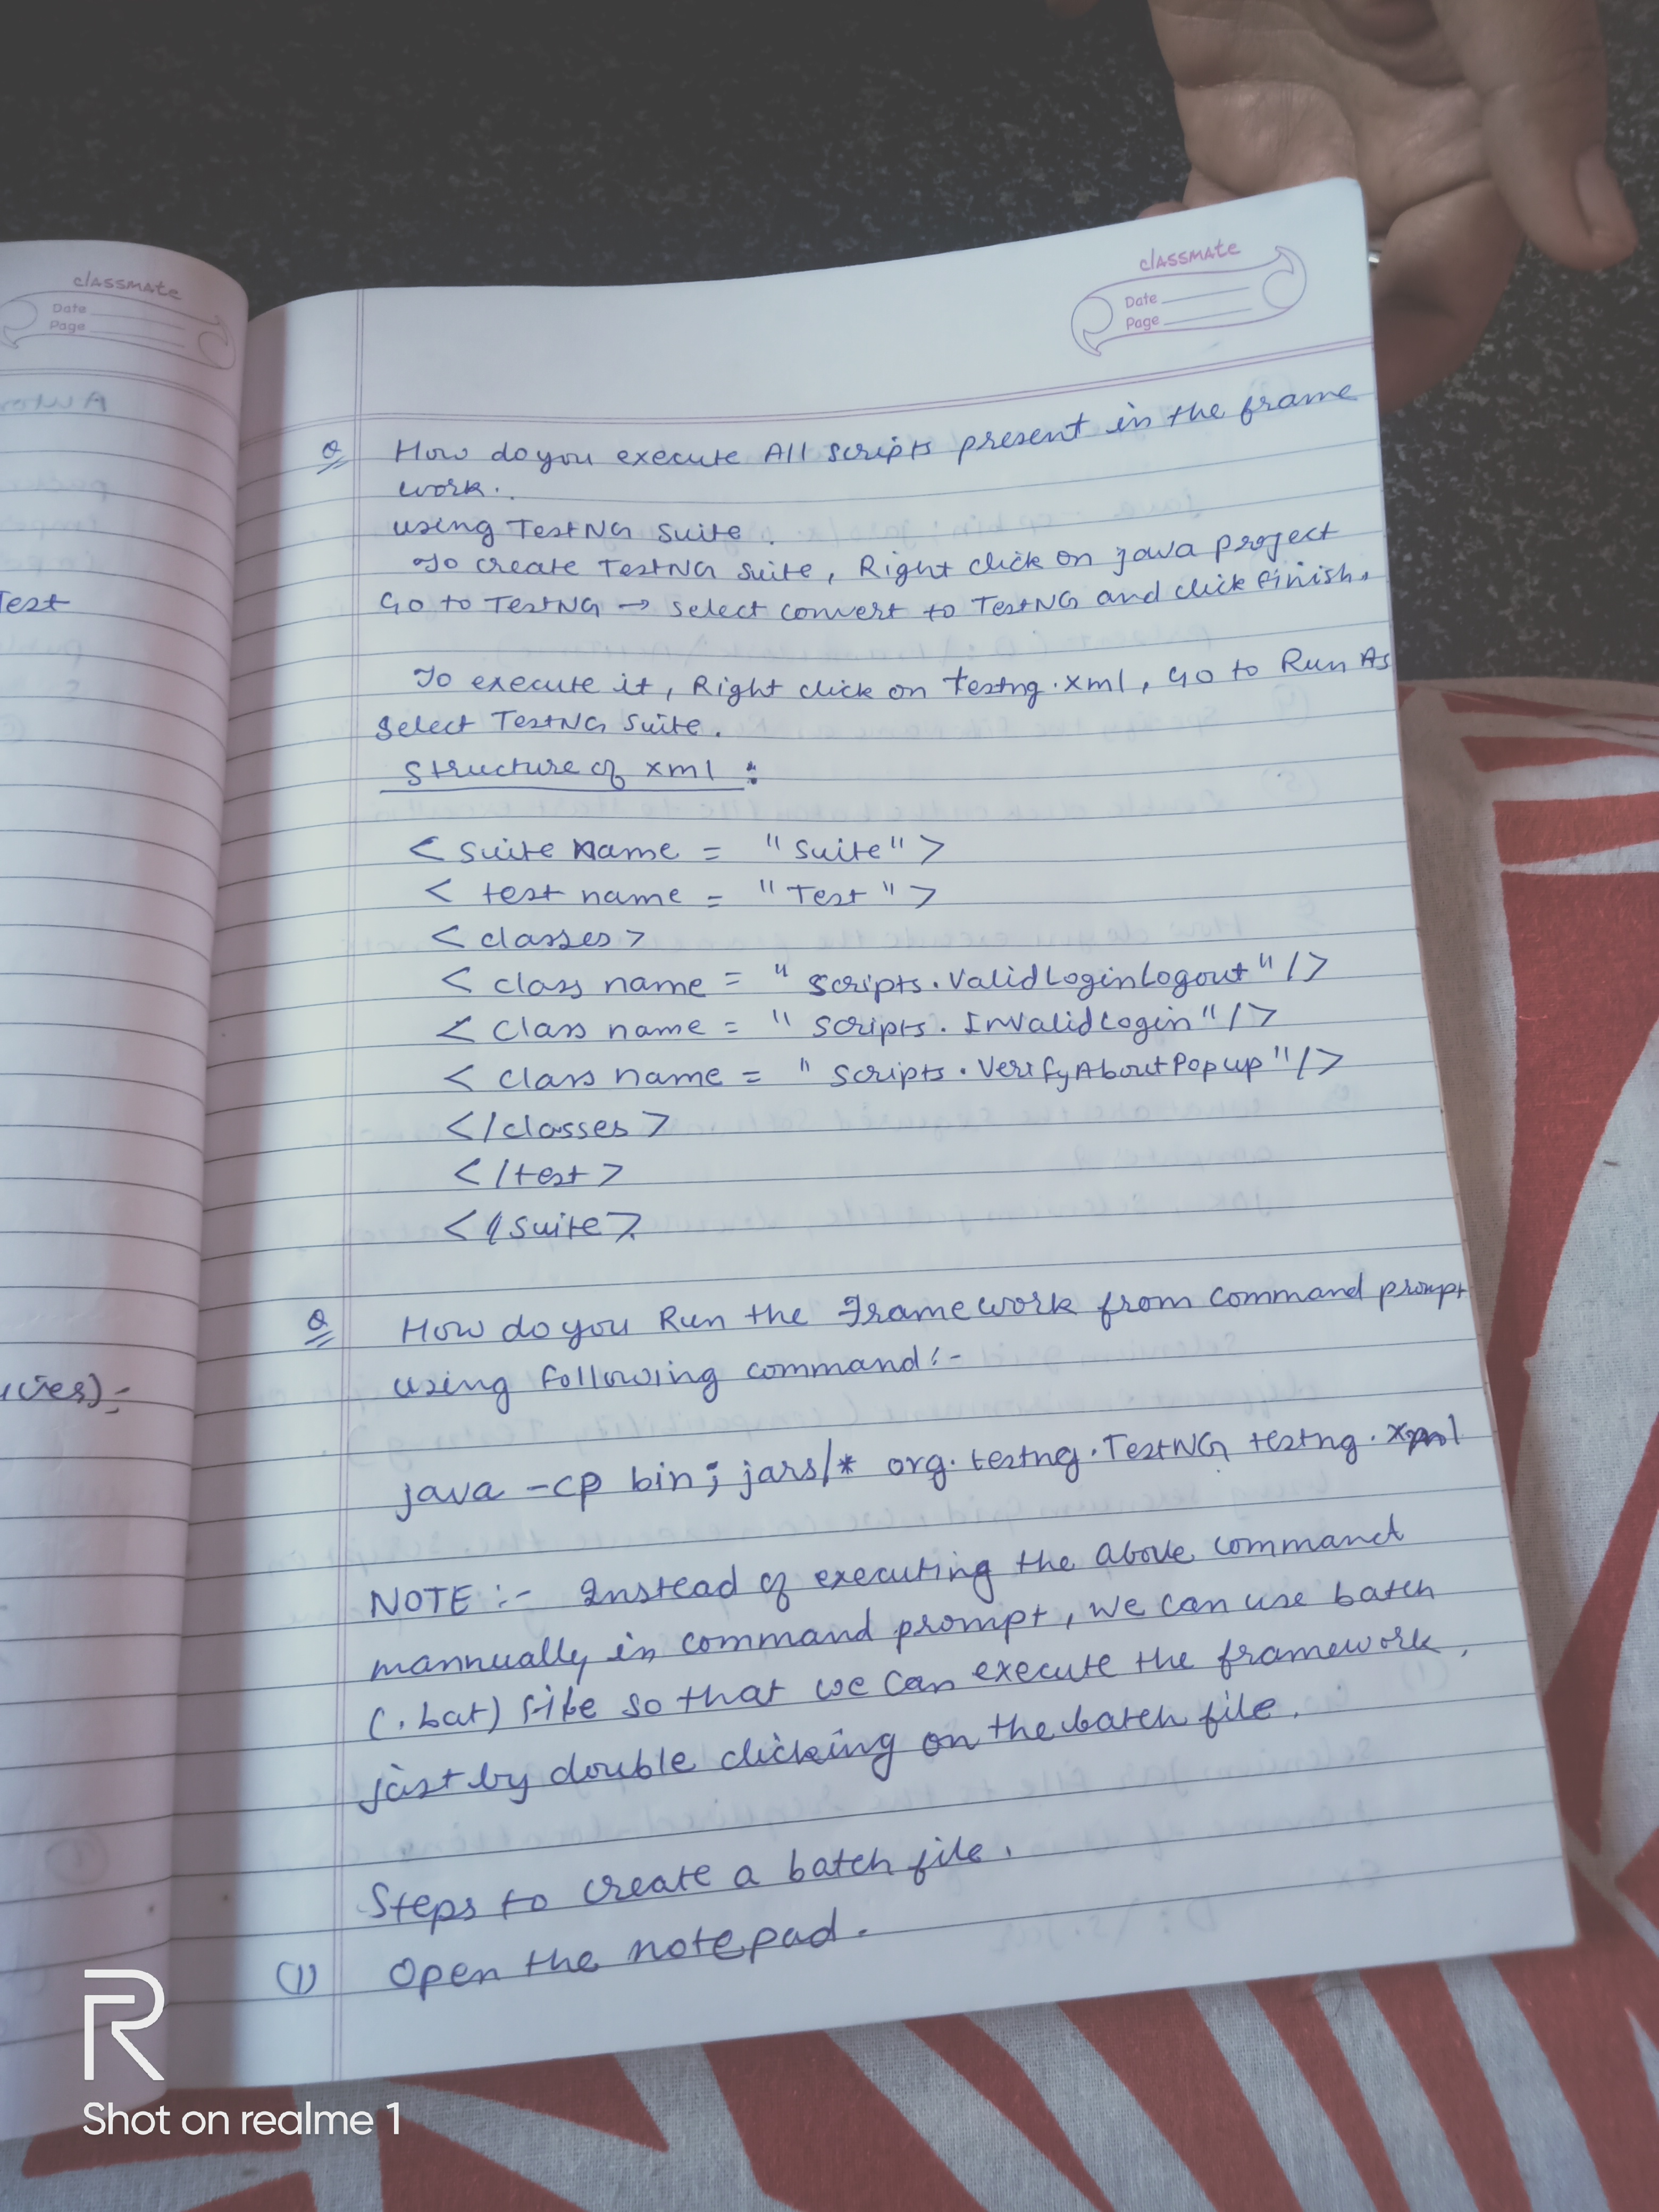 classmate
Date
Page
Test
classmate
Date
Page
Q How do you execute All scripts present in the frame
work..
using TestNG Suite.
To create TestNG suite, Right click on java project
Go to TestNG → select convert to TestNG and click finish.
To execute it, Right click on testng.xml, Go to Run As
select TestNG Suite.
Structure of xml :
< suite name = "Suite" >
< test name = "Test" >
< classes >
< class name = "scripts.ValidLoginLogout" />
< class name = "scripts.InvalidLogin" />
< class name = "scripts.VerifyAboutPopup" />
</classes >
</test >
</suite >
Q How do you Run the Framework from command prompt
using following command:-
java -cp bin; jars/* org.testng.TestNG testng.xml
NOTE :- Instead of executing the above command
mannually in command prompt, we can use batch
(.bat) file so that we can execute the framework.
just by double clicking on the batch file.
Steps to create a batch file.
(1) Open the notepad.
R
Shot on realme 1